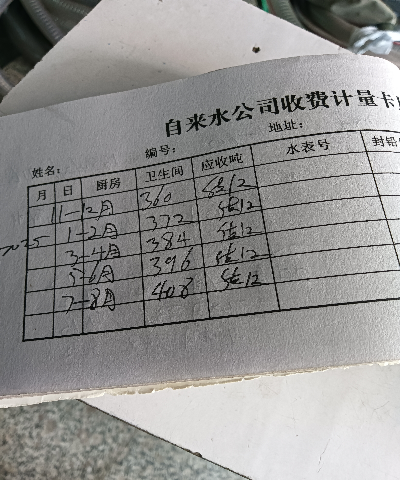 自来水公司收费计量卡
姓名: 编号: 地址:
月 日 厨房 卫生间 应收吨 水表号 封铅
11-12月 360 估12
2025 1-2月 372 估12
3-4月 384 估12
5-6月 396 估12
7-8月 408 估12